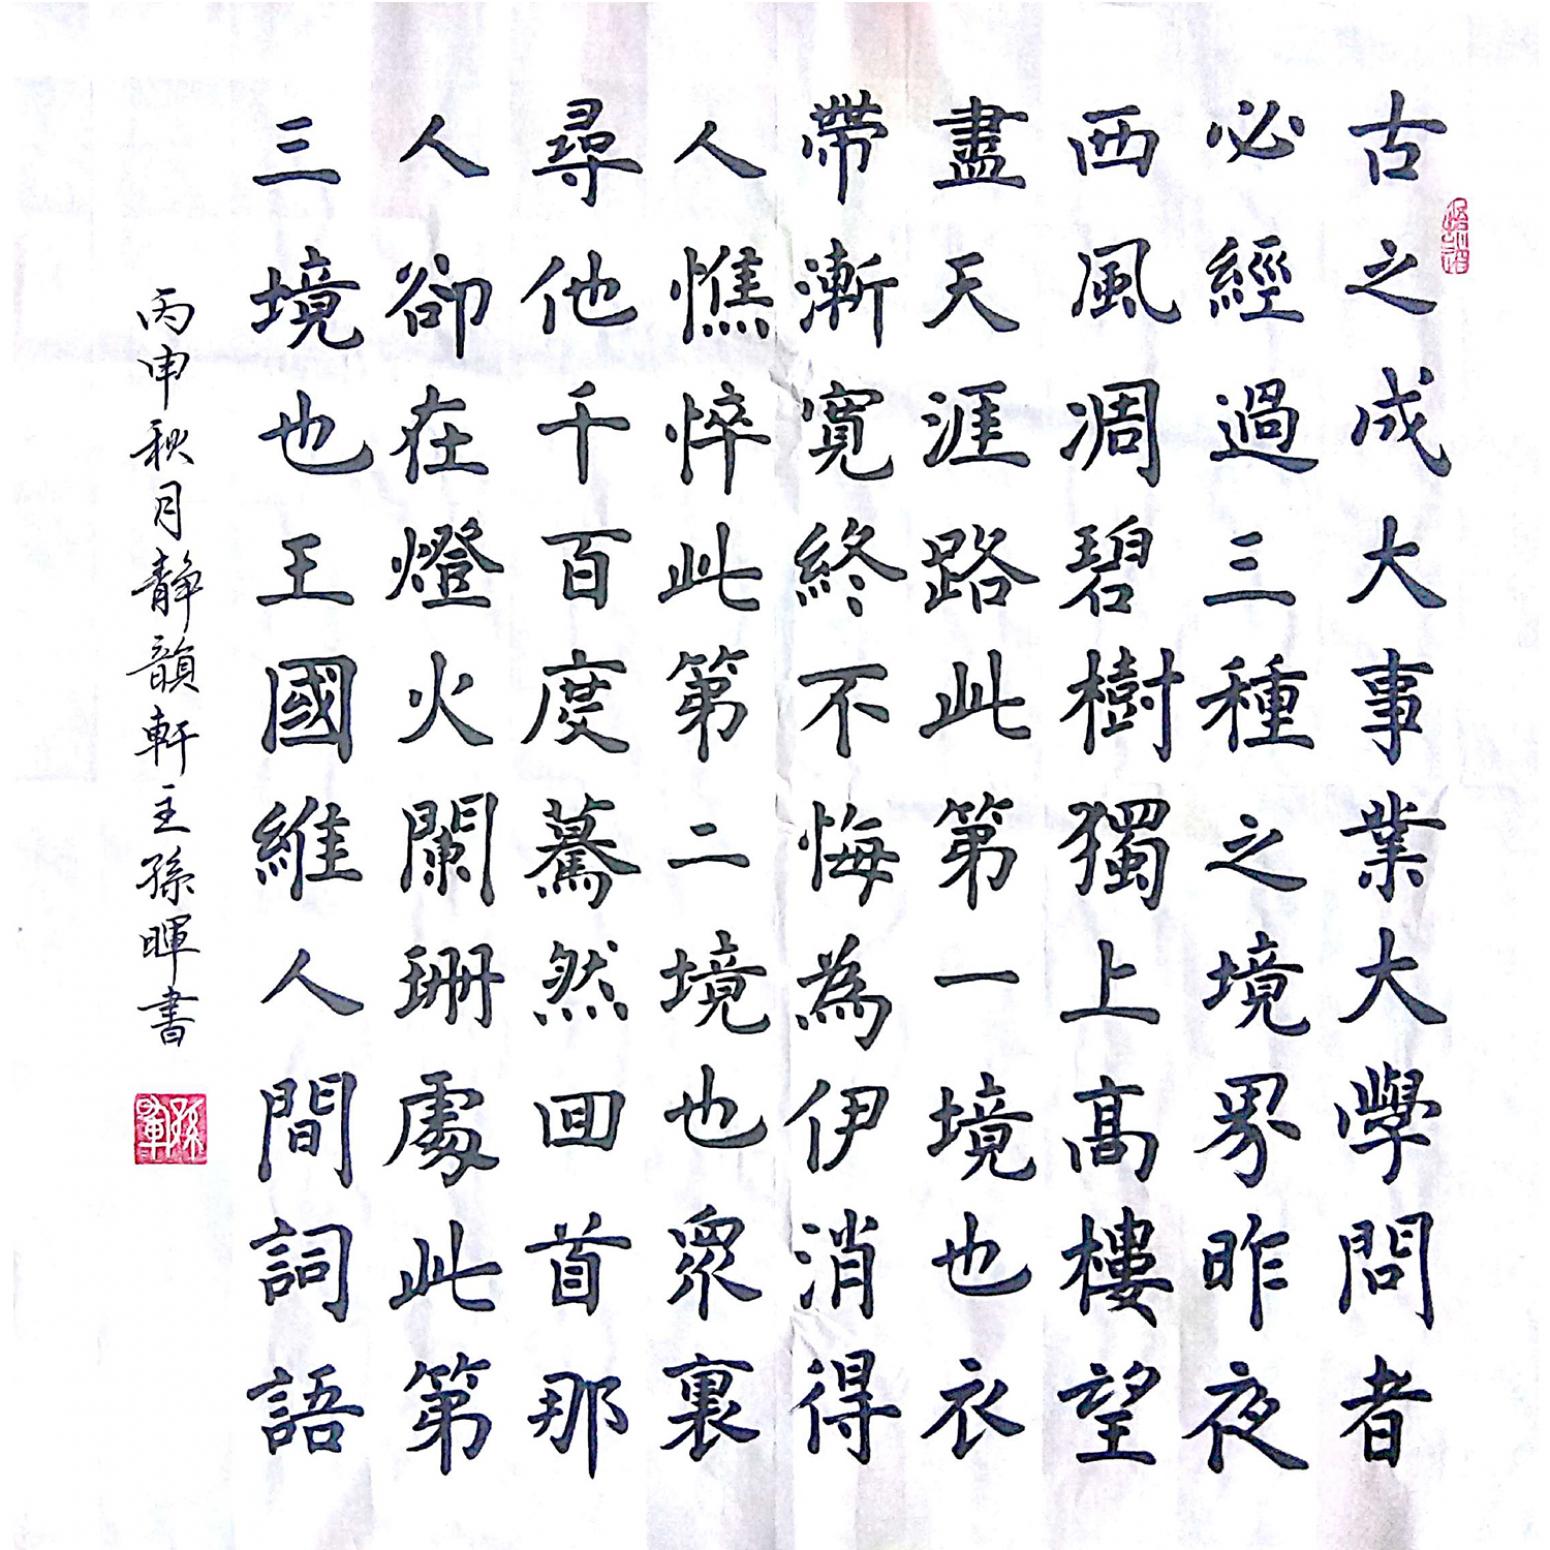 古之成大事業大學問者
必經過三種之境界昨夜
西風凋碧樹獨上高樓望
盡天涯路此第一境也衣
帶漸寬終不悔為伊消得
人憔悴此第二境也眾裏
尋他千百度驀然回首那
人卻在燈火闌珊處此第
三境也王國維人間詞語
丙申秋月靜韻軒主孫暉書
孫暉